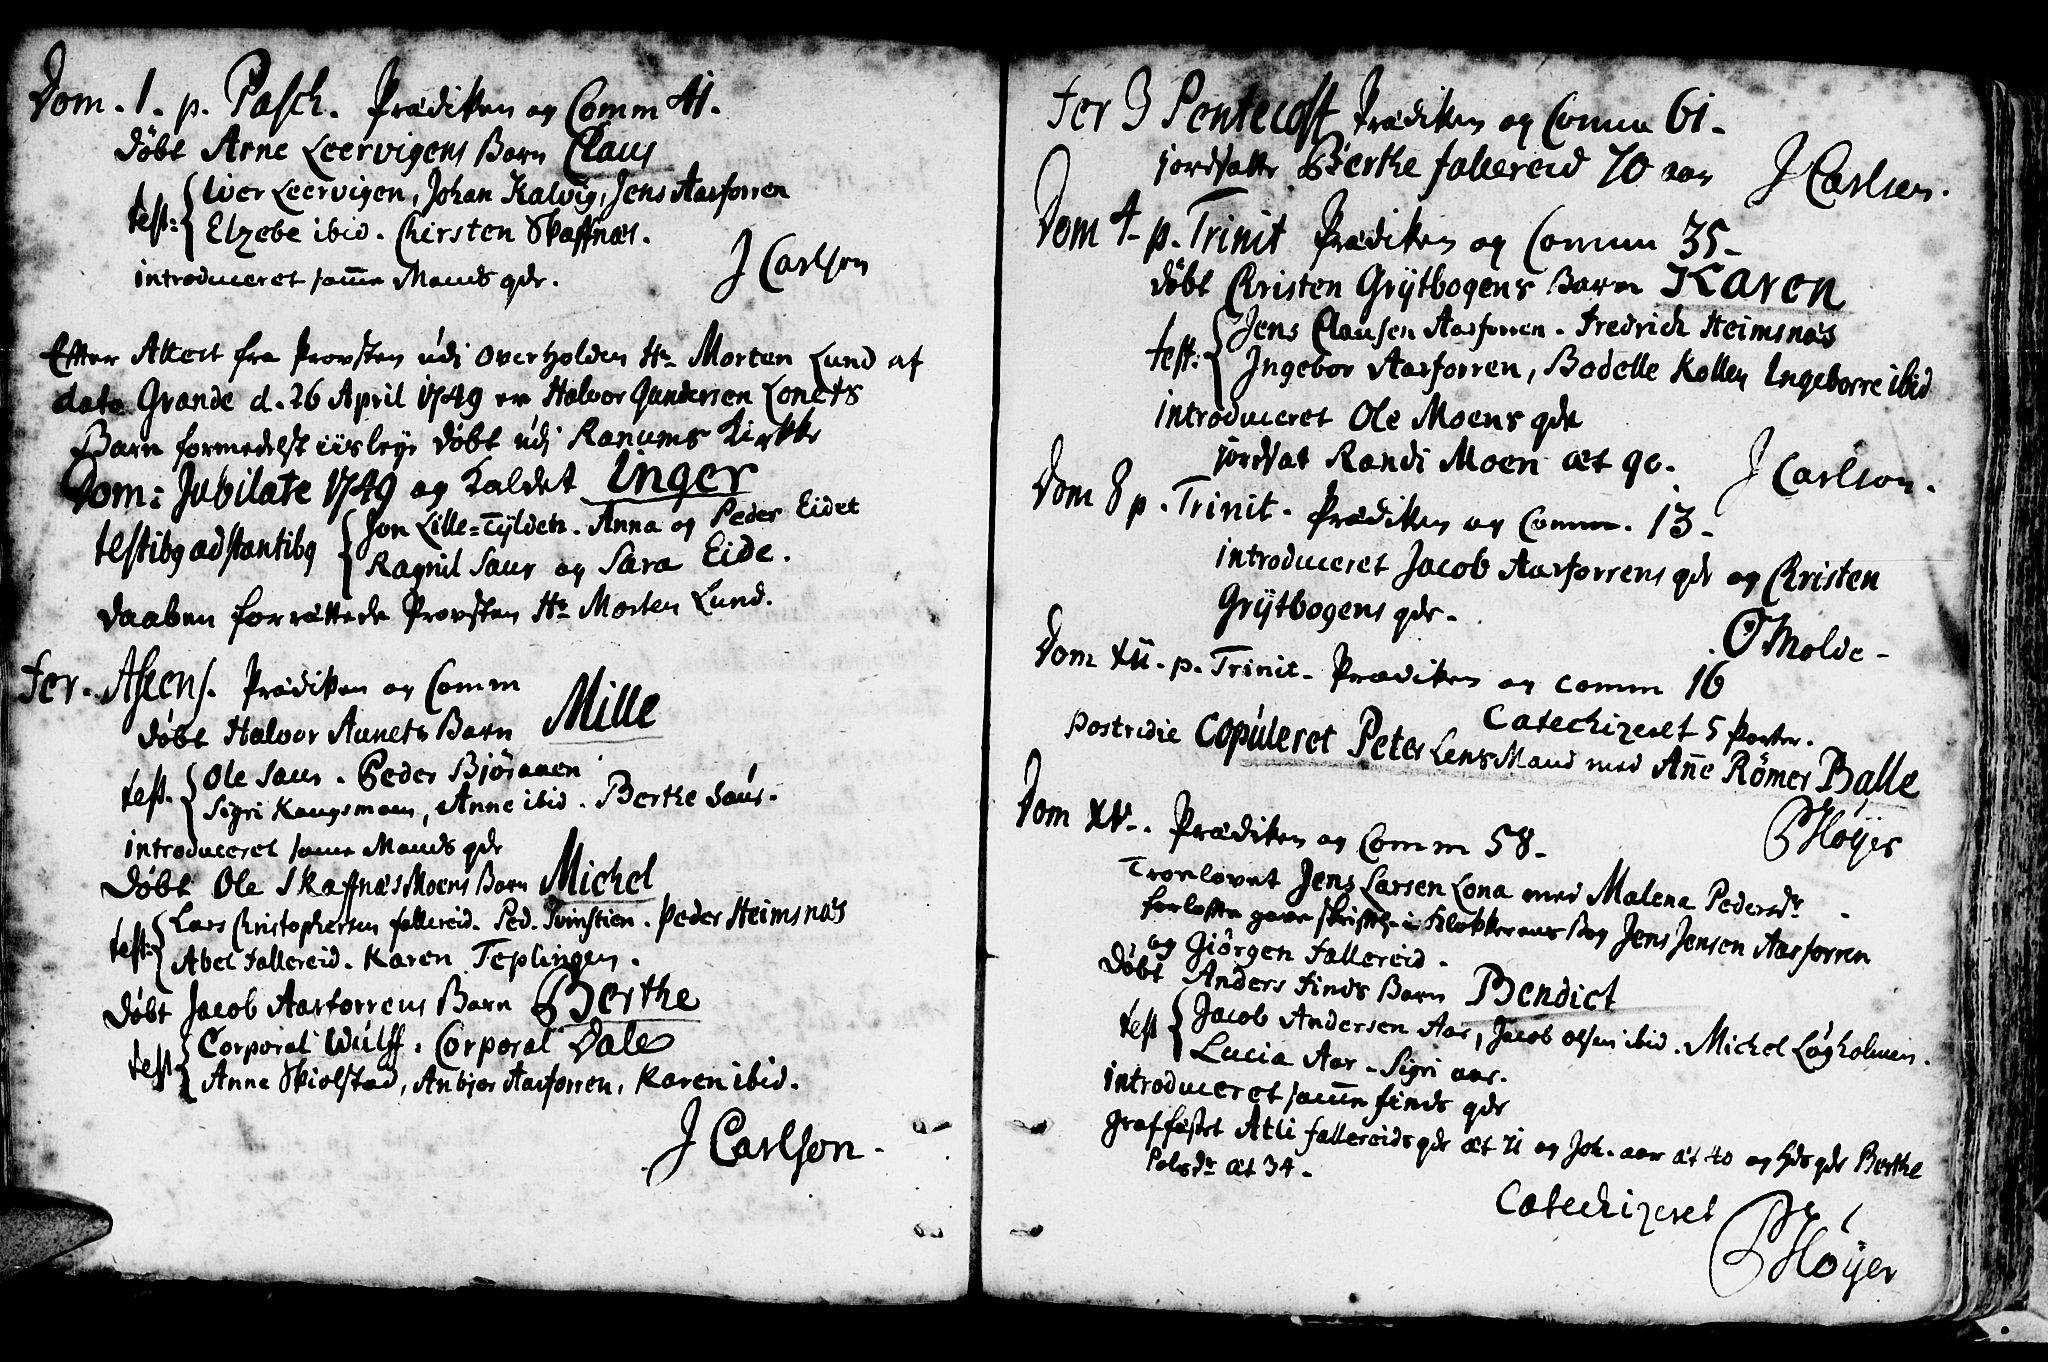 Dom. 1. p. Pasch. Prædiken og Comm 41.
døbt Arne Leervigens Barn Claus
test: Iver Leervigen, Johan Kalvig, Jens Aasforren
Elzebe ibid. Chirsten Skaffnæs.
introduceret samme Mands qde.
J Carlson
Efter Attest fra Provsten udi Overholden Hr Morten Lund af
dato Grande d. 26 April 1749 er Halvor Gundersen Lonets
Barn formedelst iisleye døbt udi Ranums Kirke
Dom: Jubilate 1749 og Kaldet Inger
testibq adstantibq Jon Lille=Tylden. Anna og Peder Eidet
Ragnil Saur og Sara Eide.
Daaben forrættede Provsten Hr Morten Lund.
Fer. Ascens. Prædiken og Comm
døbt Halvor Aunets Barn Mille
test. Ole Saur. Peder Björaaen
Sigri Kongsmoen, Anne ibid. Berthe Saur.
introduceret samme Mands qde
Døbt Ole Skaffnæs Moens Barn Michel
test: Lars Christophersen fallereid. Ped. . Peder Heimsnæs
Abel Fallereid. Karen Teplingen.
Døbt Jacob Aasforrens Barn Berthe
test Corporal Wulff. Corporal Dale
Anne Skiolstad, Anbjør Aasforren, Karen ibid.
J Carlson.
Fer 3 Pentecost Prædiken og Comm 61.
jordsatte Berthe fallereid 70 aar
J Carlsen.
Dom 4. p. Trinit Prædiken og Comm 35.
døbt Christen Grÿtbogens Barn Karen
test: Jens Clausen Aasforren. Fredrich Heimsnæs
Ingebor Aasforren, Bodelle Kollen Ingeborre ibid
introduceret Ole Moens qde
jordsat Randi Moen æt 90.
J Carlson.
Dom 8 p. Trinit. Prædiken og Comm. 13.
introduceret Jacob Aasforrens qde og Christen
Grÿtbogens qde.
O Molde
Dom XII. p. Trinit. Prædiken og comm 16
Catechizeret 5 Parter.
Postridie Copuleret Peter LensMand med Añe Römer Balle
P Høÿer
Dom XV. Prædiken og Comm 58.
Trolovet Jens Larsen Lona med Malena Pedersdr
forløfte gave skriftl. i Klokkerens Bog Jens Jensen Aasforren
og Giørgen Fallereid.
Døbt Anders Finds Barn Bendict
test Jacob Andersen Aar, Jacob olsen ibid. Michel Løgholmen.
Lucia Aar. Sigri aar.
introduceret samme finds qde
graffæstet Atli fallereids qde æt 71 og Joh. aar æt 40 og qde Berthe
æt 34.
Catechizeret
P Høÿer